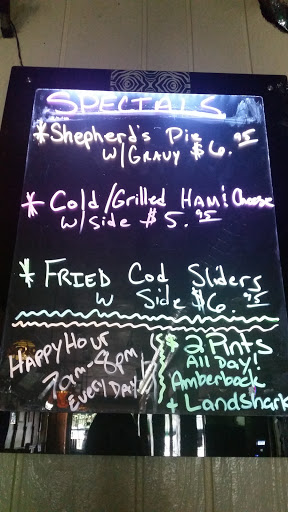 SPECIALS
* Shepherd's Pie
w/ GRAVY $6.95
* Cold/Grilled HAM & Cheese
w/ side $5.95
* FRIED Cod Sliders
w Side $6.95
HAPPY HOUR
7am-8pm
EVERY DAY!
$2 Pints
ALL DAY!
Amberbock
+ Landshark